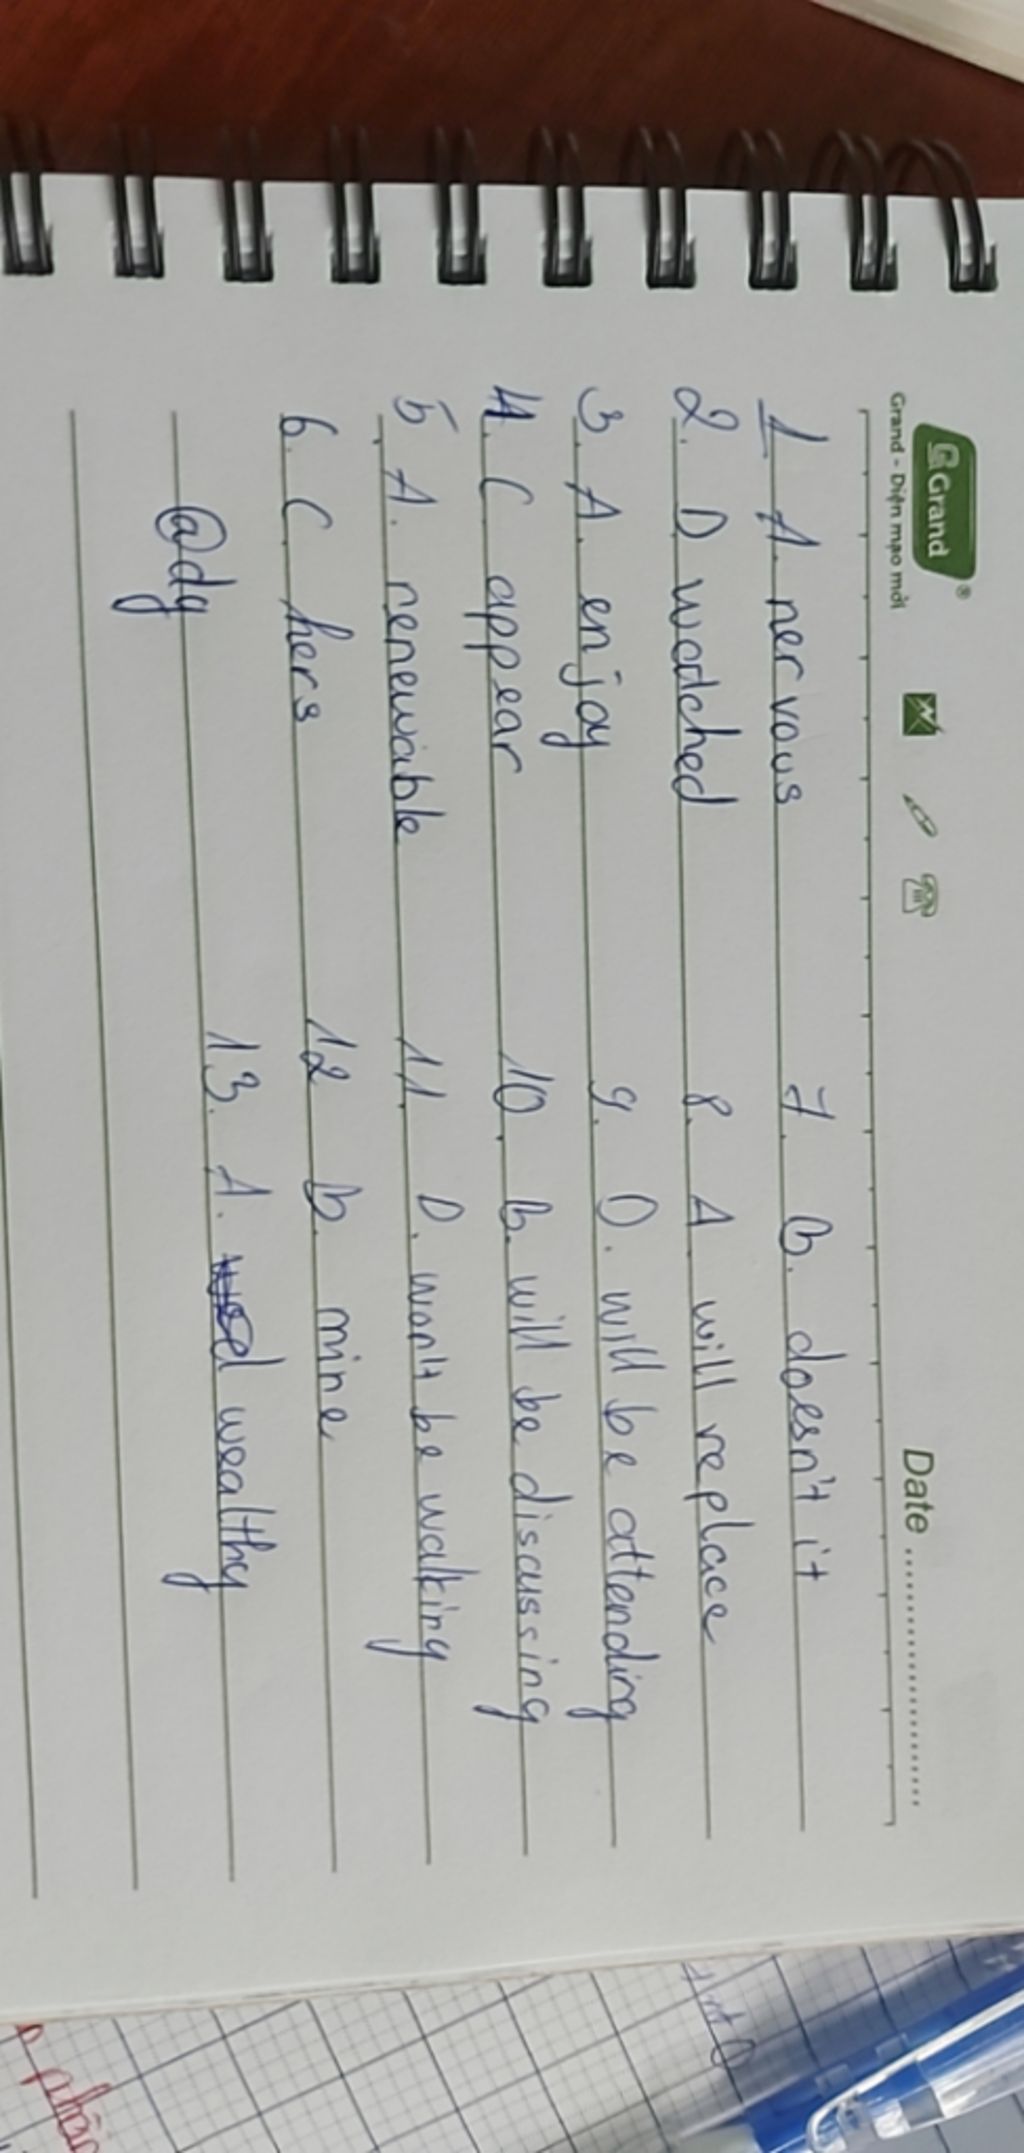 Grand ®
Grand - Diện mạo mới
Date
1 A. nervous
2. D watched
3. A. enjoy
4. C appear
5. A. renewable
6. C hers
@dy
7. B. doesn't it
8. A will replace
9. D. will be attending
10. B. will be discussing
11. D. won't be walking
12 B. mine
13. A. wealthy